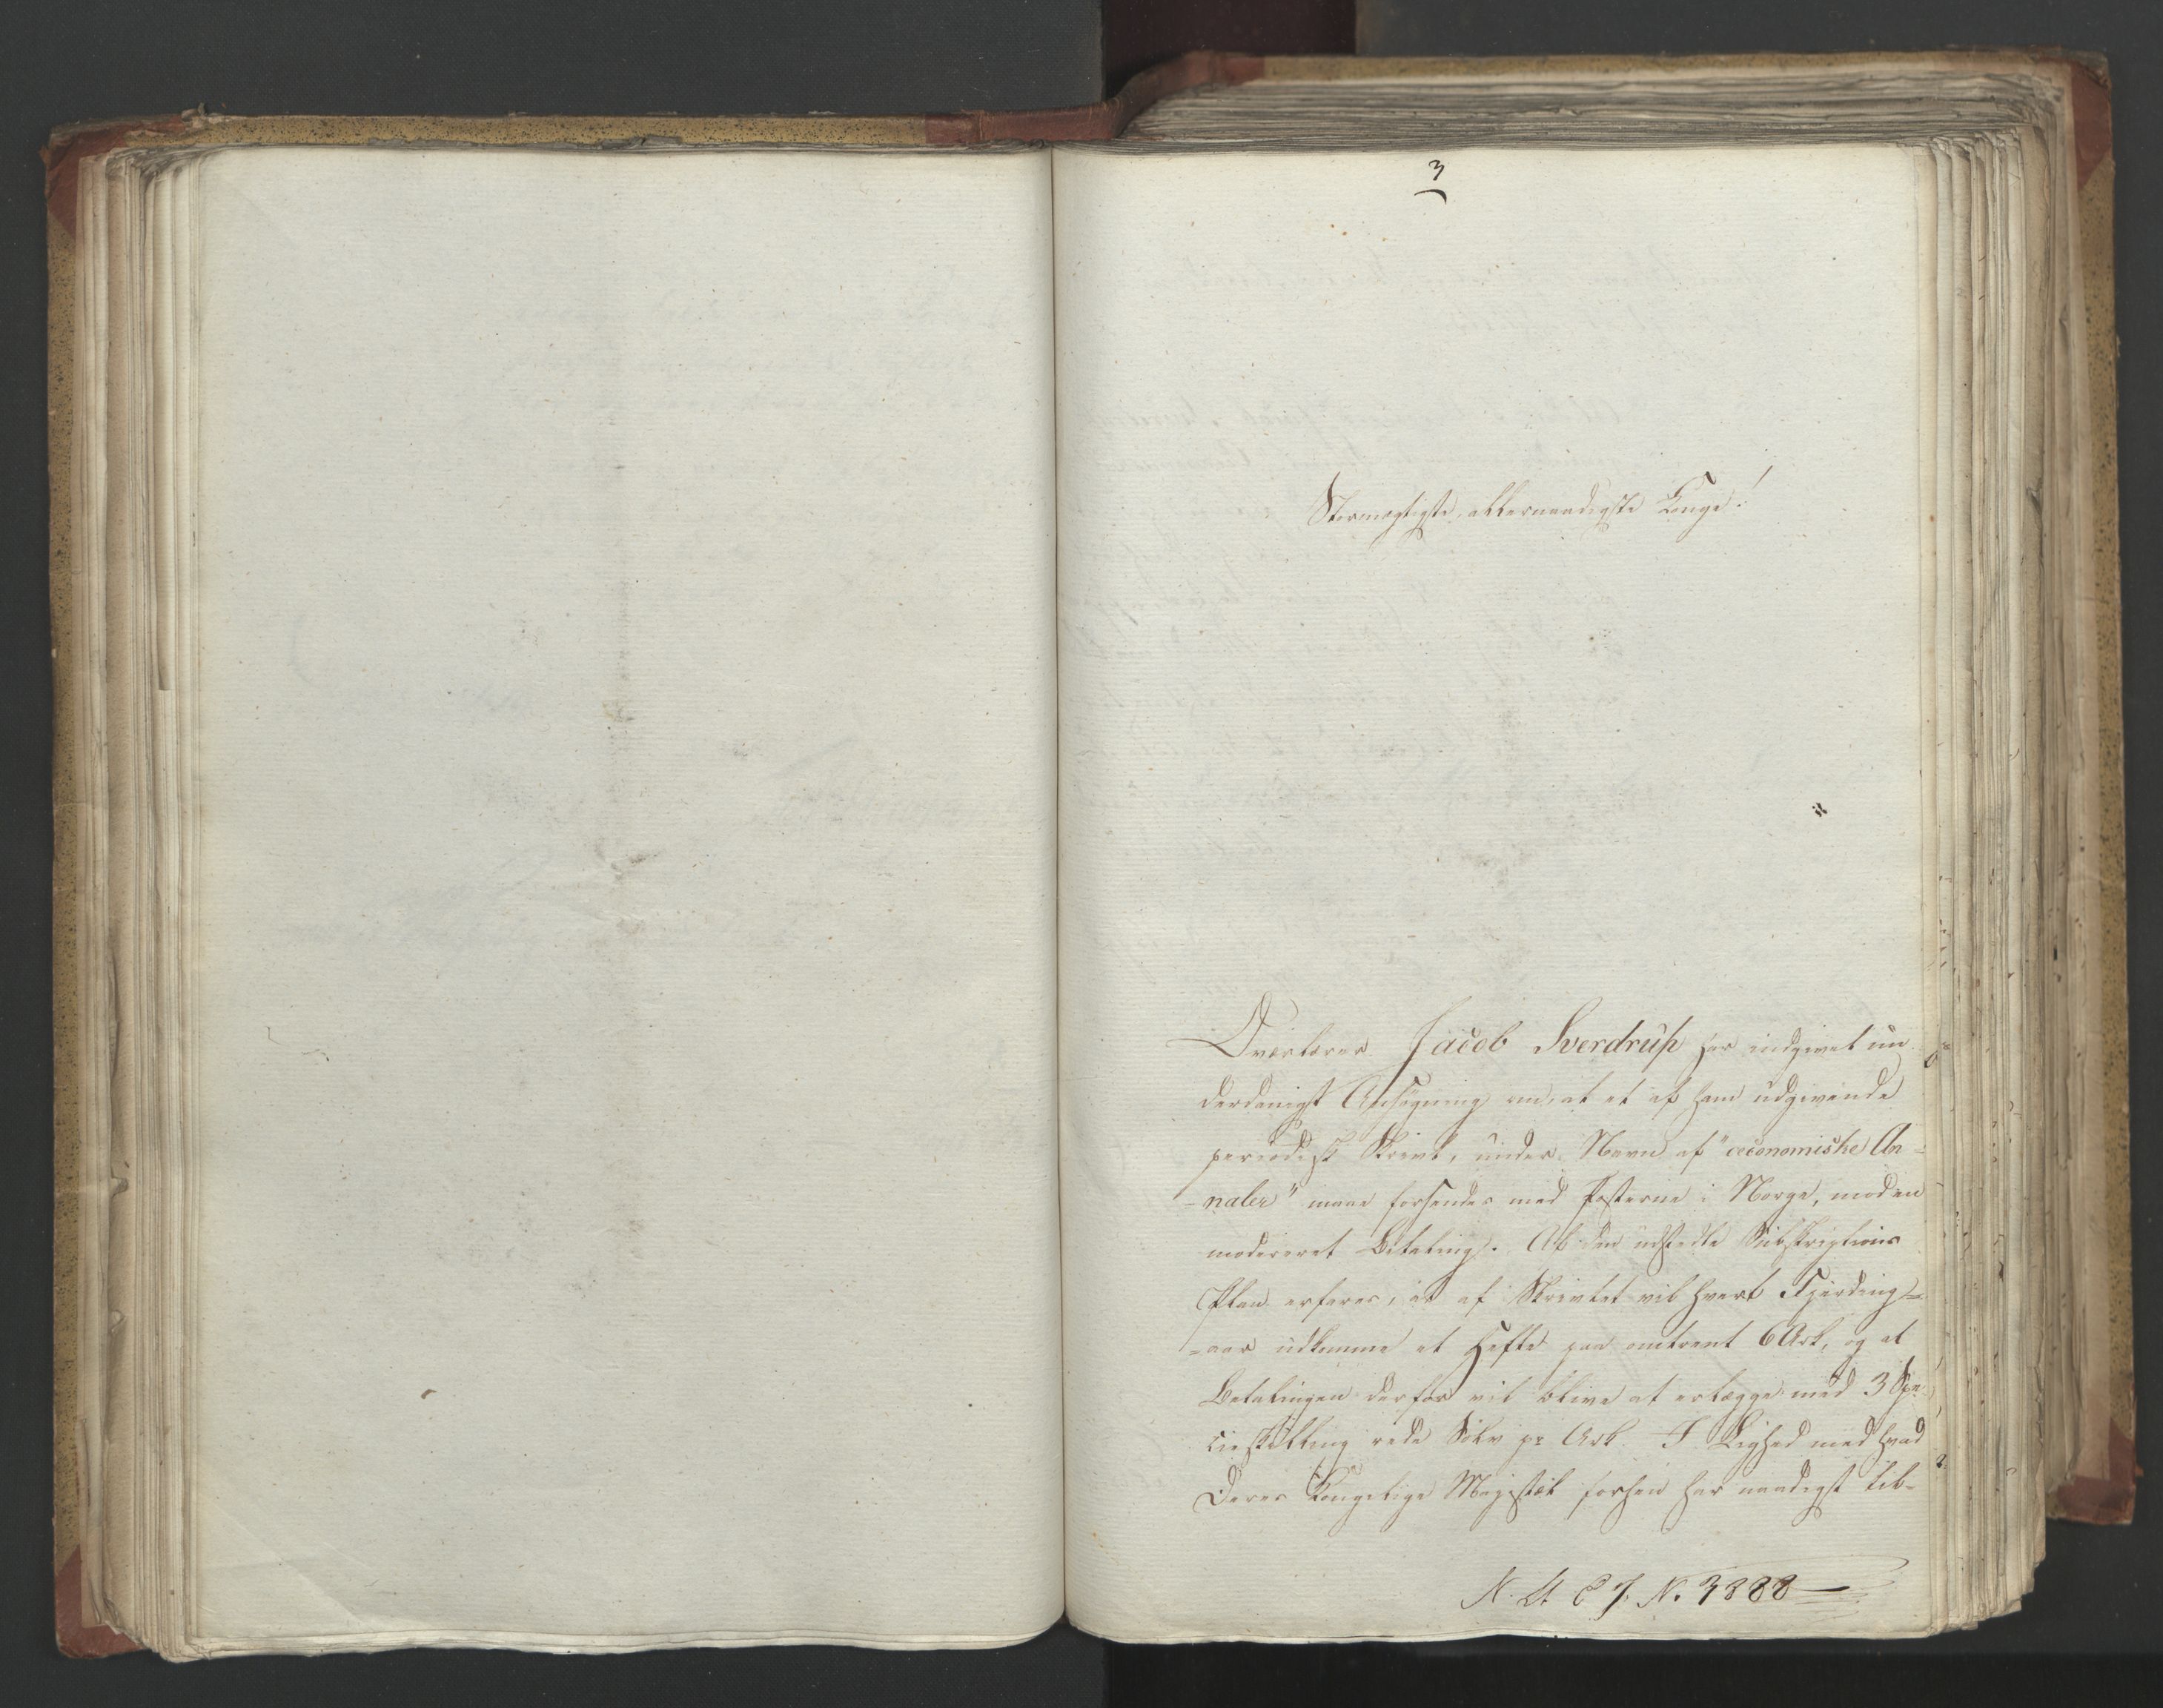 3
Stormægtigste, allernaadigste Konge!
Overlærer Jacob Sverdrup har indgivet un
derdanigst Ansøgning om, at et af ham udgivende
periodisk Skrivt, under Navn af "oeconomiske An-
-naler" maae forsendes med Posterne i Norge, mod en
modereret Betaling. Af den udstedte Subskriptions
Plan erfares, at af Skrivtet vil hvert Fjerding-
-aar udkomme et Hefte paa omtrent 6 Ark, og at
Betalingen derfor vil blive at erlægge med 3 Spe-
cieskilling rede Sølv pr Ark. I Lighed med hvad
Deres Kongelige Majestæt forhen har naadigst til-
N. A E J. N. 3888